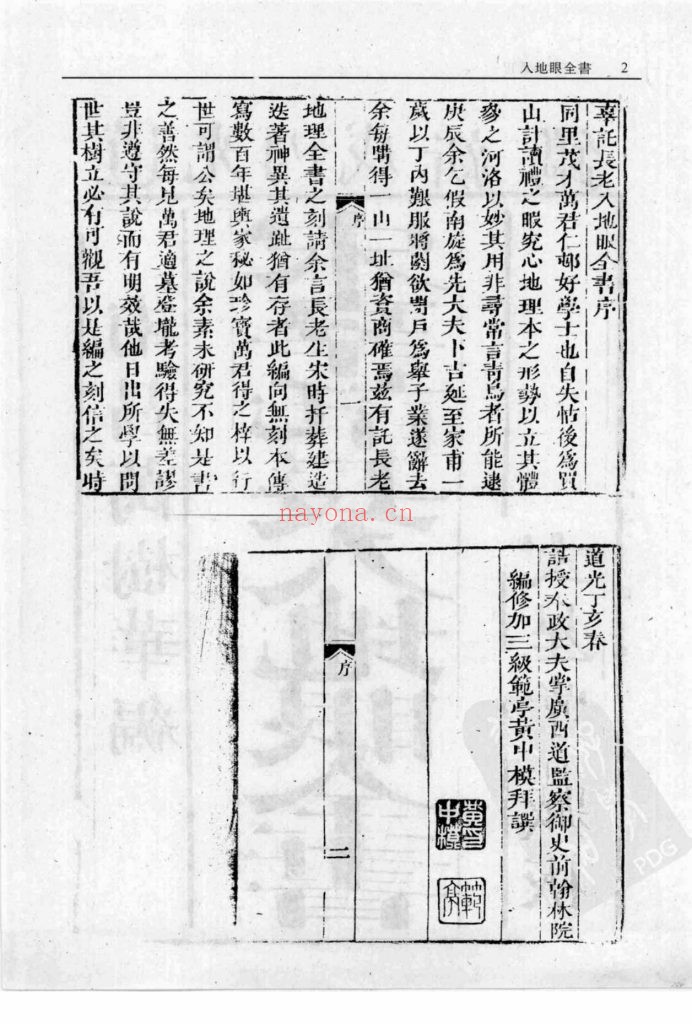 入地眼全書 2
辜託長老入地眼全書序
同里茂才萬君仁邨好學士也自失怙後為買
山計讀禮之暇究心地理本之形勢以立其體
參之河洛以妙其用非尋常言青烏者所能逮
庚辰余乞假南旋為先大夫卜吉延至家甫一
歲以丁內艱服將闋欲閉戶為舉子業遂辭去
余每購得一山一址猶資商確焉茲有託長老
序
一
地理全書之刻請余言長老生宋時扦葬建造
迭著神異其遺趾猶有存者此編向無刻本傳
寫數百年堪輿家秘如珍寶萬君得之梓以行
世可謂公矣地理之說余素未研究不知是書
之善然每見萬君適墓登壠考驗得失無差謬
豈非遵守其說而有明效哉他日出所學以問
世其樹立必有可觀吾以是編之刻信之矣時
nayona.cn
道光丁亥春
誥授奉政大夫掌廣西道監察御史前翰林院
編修加三級範亭黃中模拜譔
黃印中模
範亭
序
二
PDG